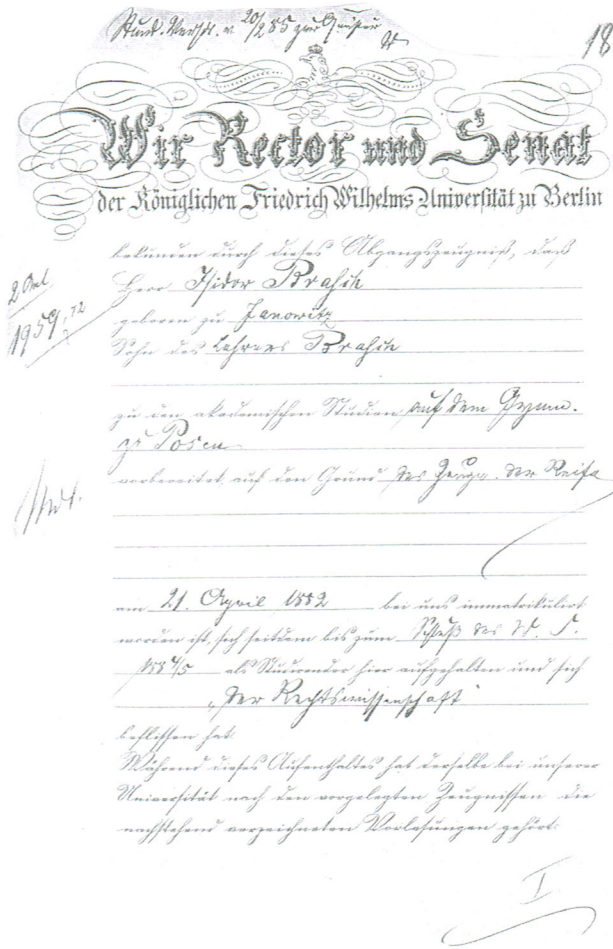 20/2 85 zur
18
Wir Rector und Senat
der Königlichen Friedrich Wilhelms Universität zu Berlin
bekunden durch dieses Abgangszeugniß, daß
Herr Isidor Brahn
geboren zu Janowitz
Sohn des Lehrers Brahn
zu den akademischen Studien auf dem Gymn.
zu Posen
vorbereitet, auf den Grund des Zeugn. der Reife
am 21. April 1882 bei uns immatrikulirt
worden ist, sich seitdem bis zum Schluß des W. S.
188 4/5 als Studirender hier aufgehalten und sich
„der Rechtswissenschaft“
beflissen hat
Während dieses Aufenthaltes hat derselbe bei unserer
Universität nach den vorgelegten Zeugnissen die
nachstehend verzeichneten Vorlesungen gehört:
I